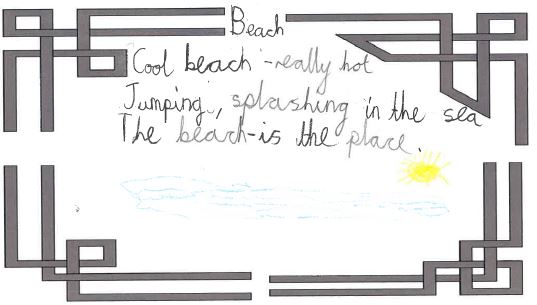 Beach
Cool beach-really hot
Jumping, splashing in the sea
The beach-is the place.